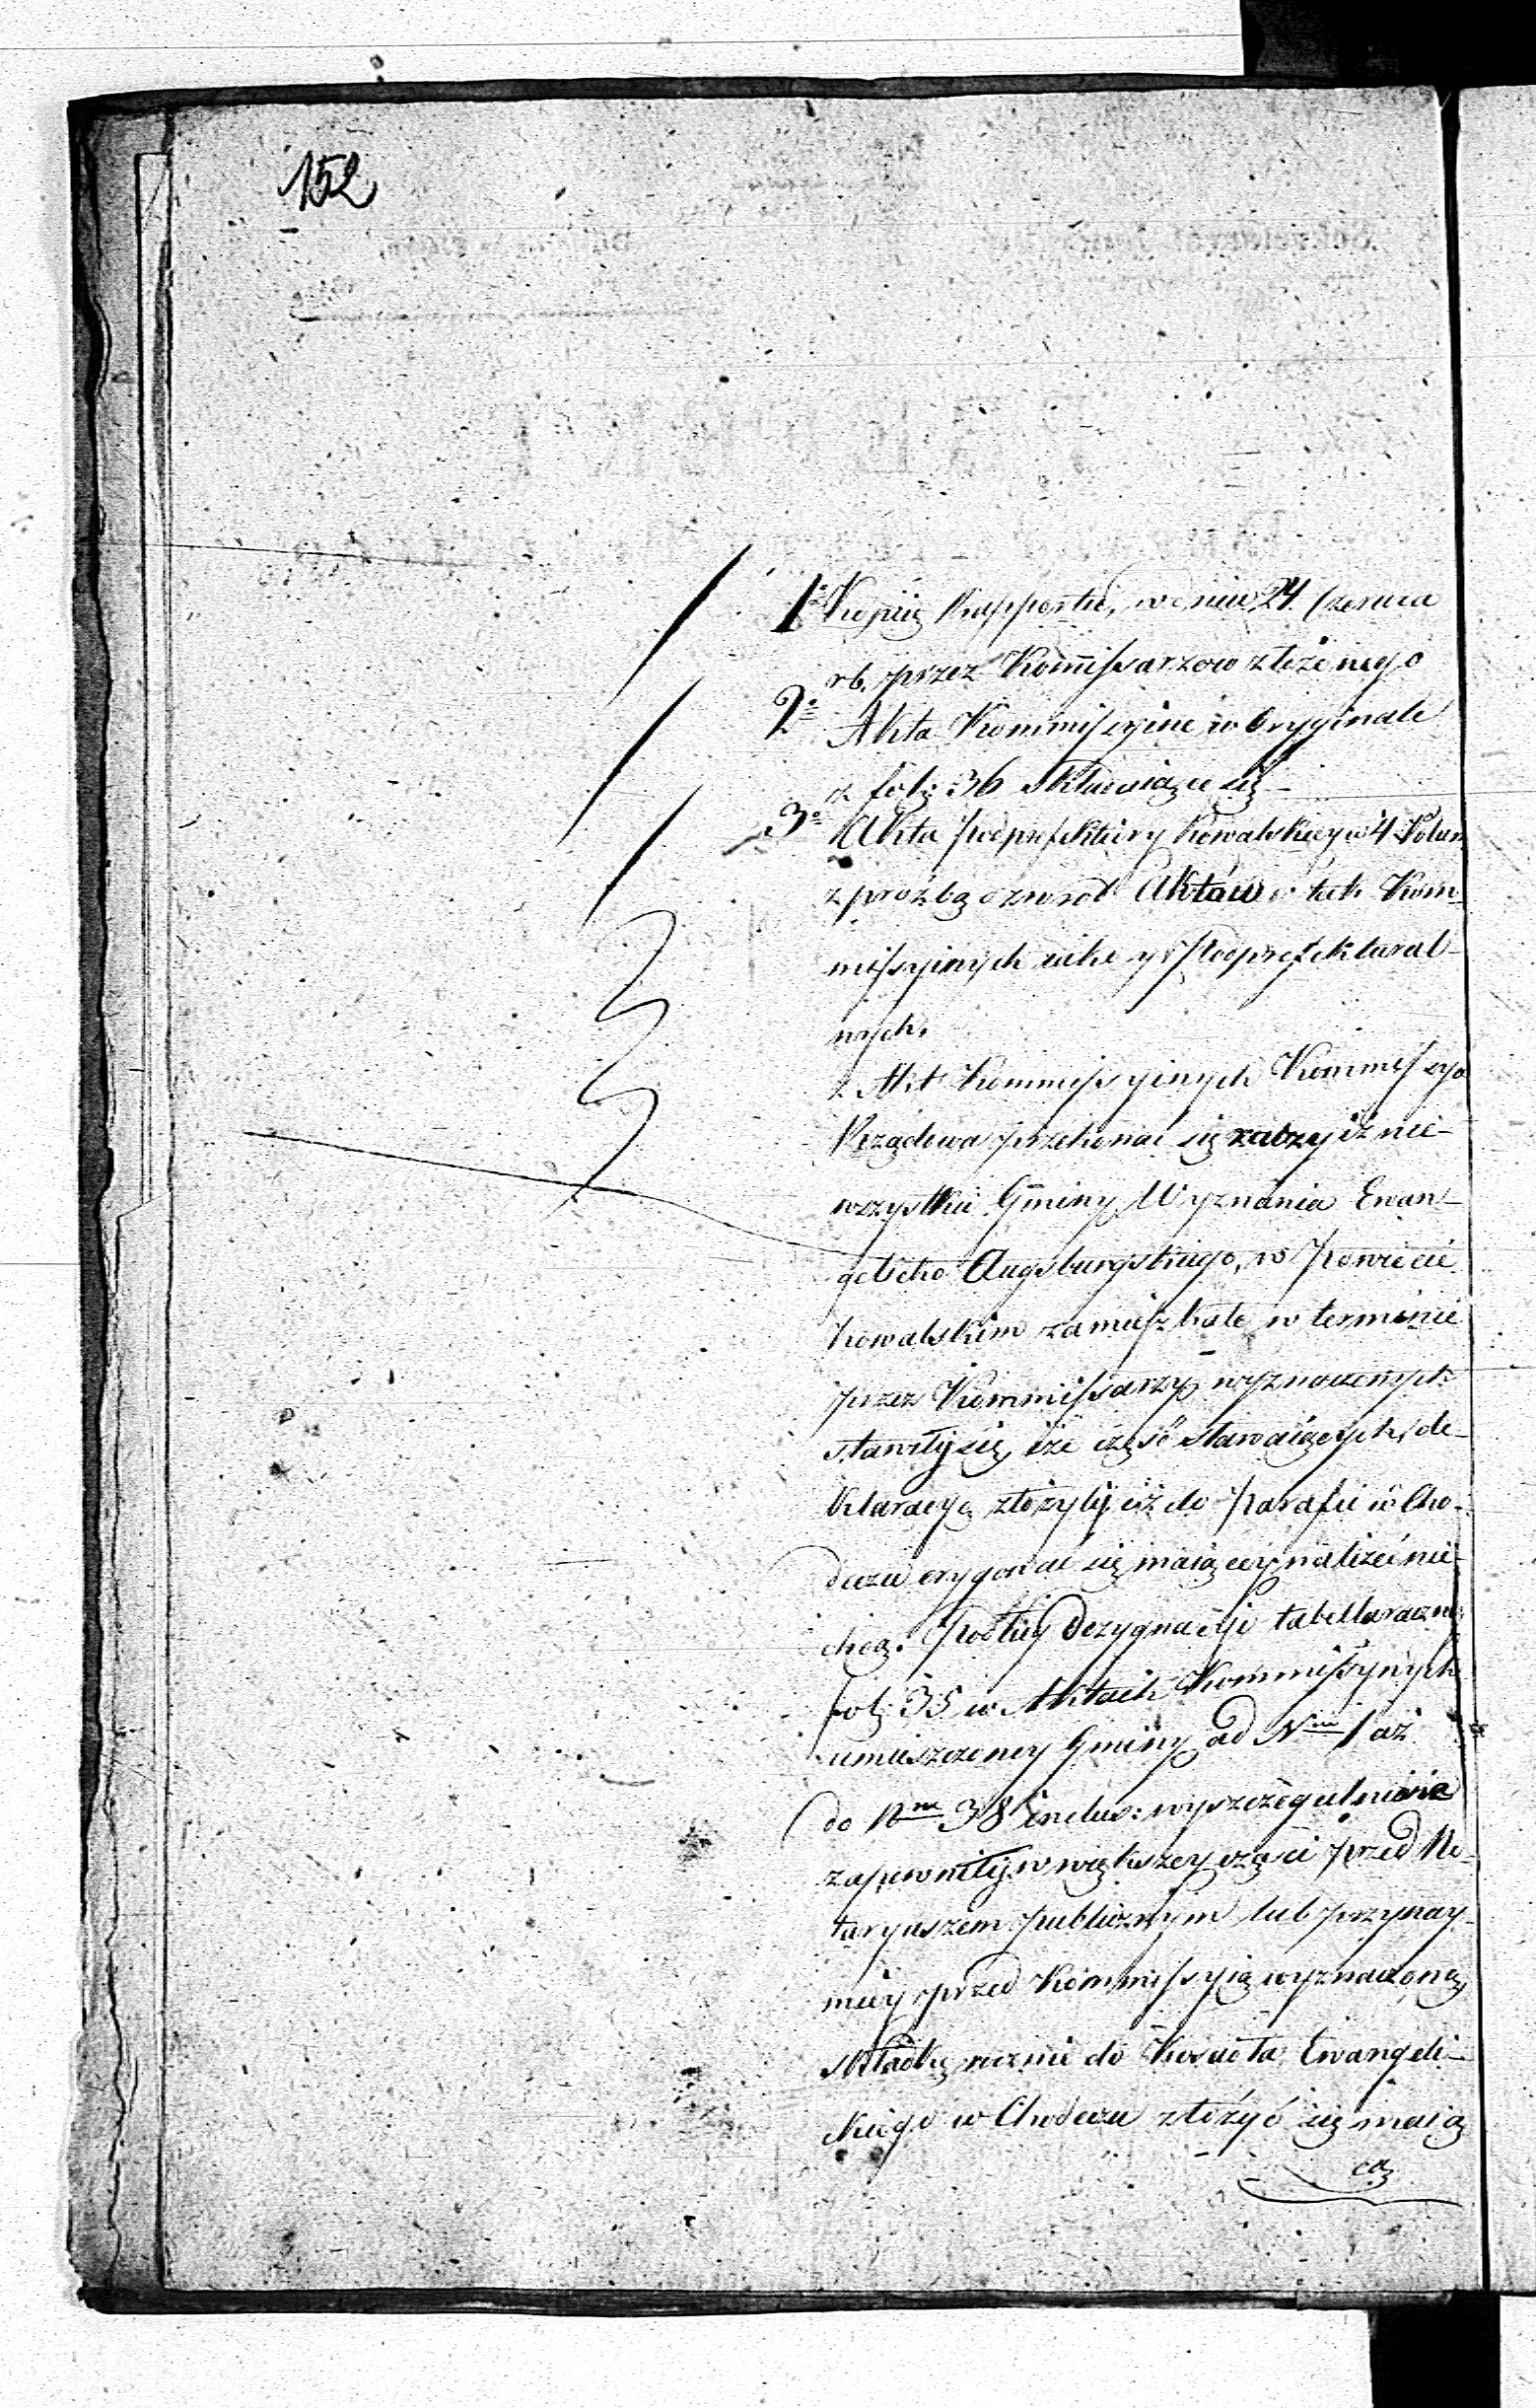 152
1º Kopiią Rapportu, w dniu 24. Czerwca
rb. przez Kommissarzow złożonego
2º Akta Kommissyine w Oryginale
z fol: 36 składaiące się
3º Akta Podprefektury Kowalskiey w 4 Volum
z proźbą o zwrot Aktów tak Kom-
missyinych iako y Podprefektural-
nych.
z Akt Kommissyinych Kommissya
Rządowa przekonać się raczy iż nie-
wszystkie Gminy Wyznania Ewan-
gelicko Augsburgskiego, w Powiecie
Kowalskim zamieszkałe w terminie
przez Kommissarzy wyznaczonych
stawiły się, że część stawaiących, de-
klaracyą złożyły iż do Parafii w Cho-
deczu erygować się maiącey należeć nie-
chcą. Podług Dezygnacyi tabellaraczn:
fol: 35 w Aktach Kommissyinych
umieszczoney Gminy ad Nm 1 aż
do Nm 38 inclus: wyszczegulnione
zapewniły w większey części przed No-
taryuszem publicznym lub przynay-
miey przed Kommissyią wyznaczoną,
składkę rocznie do Koscioła Ewangeli-
ckiego w Chodeczu złożyć się maią
cą